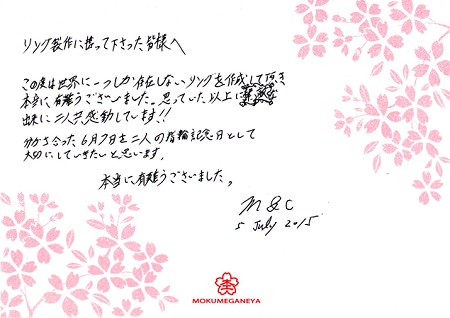 リング製作に携って下さった皆様へ
この度は世界に一つしか存在しないリングを作成して頂き
本当に有難うございました。思っていた以上に
出来に二人共感動しています!!
分かち合った6月7日を二人の指輪記念日として
大切にしていきたいと思います。
本当に有難うございました。
M & C
5 July 2015
MOKUMEGANEYA